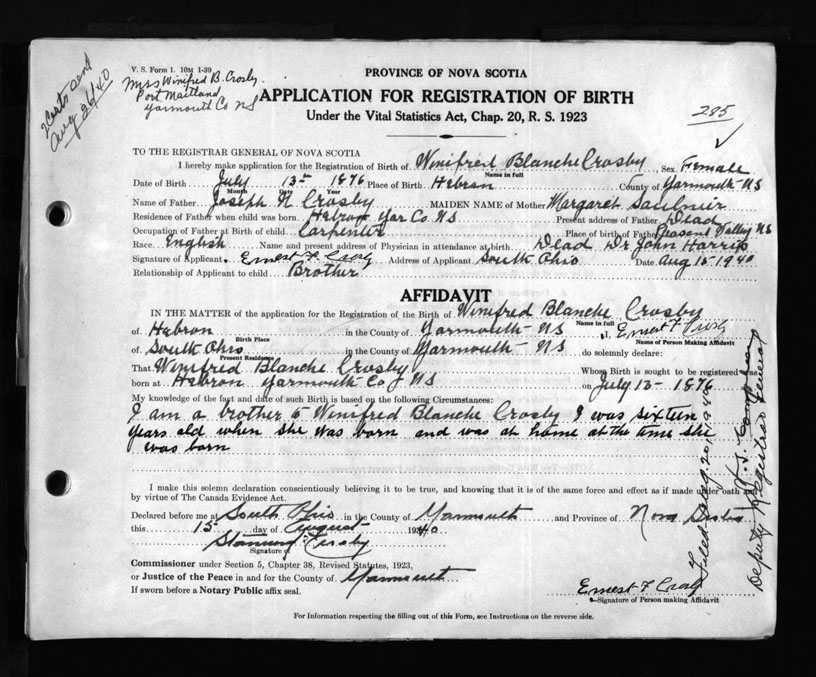 V. S. Form 1. 10M 1-39
Mrs Winifred B. Crosby.
Port Maitland
Yarmouth Co NS
Aug 26/40
PROVINCE OF NOVA SCOTIA
APPLICATION FOR REGISTRATION OF BIRTH
Under the Vital Statistics Act, Chap. 20, R. S. 1923
285
TO THE REGISTRAR GENERAL OF NOVA SCOTIA
I hereby make application for the Registration of Birth of Winifred Blanche Crosby, Sex Female
Name in full
Date of Birth July 13 1876 Place of Birth Hebron County of Yarmouth NS
Month Date Year
Name of Father Joseph N Crosby MAIDEN NAME of Mother Margaret Saulnier
Residence of Father when child was born Hebron Yar Co. NS Present address of Father Dead
Occupation of Father at Birth of child Carpenter Place of birth of Father Pleasant Valley NS
Race English Name and present address of Physician in attendance at birth Dead Dr John Harris
Signature of Applicant Ernest F Crosby Address of Applicant South Ohio Date Aug 15 1940
Relationship of Applicant to child Brother
AFFIDAVIT
IN THE MATTER of the application for the Registration of the Birth of Winifred Blanche Crosby
Name in full
of Hebron in the County of Yarmouth NS I, Ernest F Crosby
Birth Place
Name of Person Making Affidavit
of South Ohio in the County of Yarmouth NS do solemnly declare:
Present Residence
That Winifred Blanche Crosby Whose Birth is sought to be registered was
born at Hebron Yarmouth Co NS on July 13 1876
My knowledge of the fact and date of such Birth is based on the following Circumstances:
I am a brother to Winifred Blanche Crosby I was sixteen
years old when she was born and was at home at the time she
was born
I make this solemn declaration conscientiously believing it to be true, and knowing that it is of the same force and effect as if made under oath and
by virtue of The Canada Evidence Act.
Declared before me at South Ohio in the County of Yarmouth and Province of Nova Scotia
this 15 day of August 1940
Crosby
Signature of
Commissioner under Section 5, Chapter 38, Revised Statutes, 1923,
or Justice of the Peace in and for the County of Yarmouth
If sworn before a Notary Public affix seal.
Ernest F Crosby
Signature of Person making Affidavit
For Information respecting the filling out of this Form, see Instructions on the reverse side.
Filed Aug. 20, 1940
Deputy Registrar General